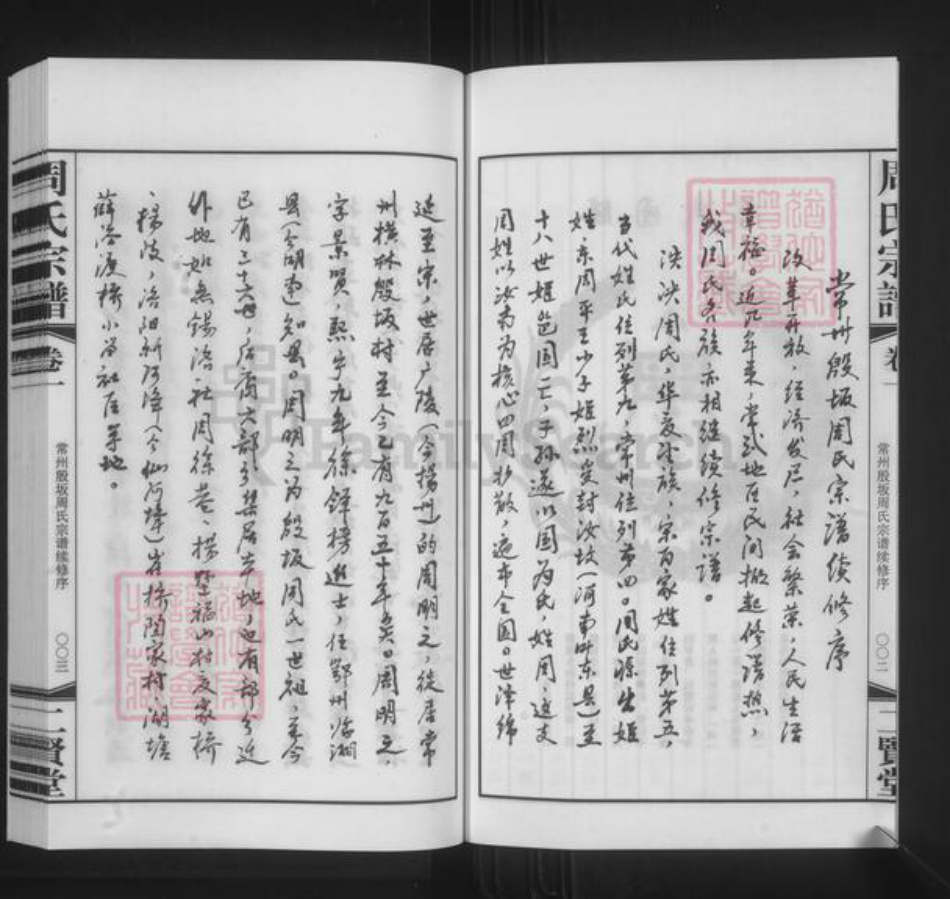 常州殷坂周氏宗谱续修序
改革开放，经济发展，社会繁荣，人民生活
幸福。近几年来，常武地区民间掀起修谱热，
我周氏各族亦相继续修宗谱。
泱泱周氏，华夏望族，宋百家姓位列第五，
当代姓氏位列第九，常州位列第四。周氏源出姬
姓，东周平王少子姬烈受封汝坟（河南叶东县）至
十八世姬邕国亡，子孙遂以国为氏，姓周，这支
周姓以汝南为核心四周扩散，遍布全国。世泽绵
延至宋，世居广陵（今扬州）的周明之，徙居常
州横林殷坂村至今已有九百五十年矣。周明之，
字景贤，熙宁九年徐铎榜进士，任鄂州临湘
县（今湖南）知县。周明之为殷坂周氏一世祖，至今
已有三十六世，后裔大部分集居本地，也有部分迁
外地如无锡洛社周徐巷、杨墅福山村度家桥
杨岐，洛阳新河泽（今仙河漳）崔桥陶家村，湖塘
薛洛渡桥小留社区等地。
周氏宗譜
卷一
常州殷坂周氏宗谱续修序
〇〇二
二賢堂
周氏宗譜
卷一
常州殷坂周氏宗谱续修序
〇〇三
二賢堂
FamilySearch